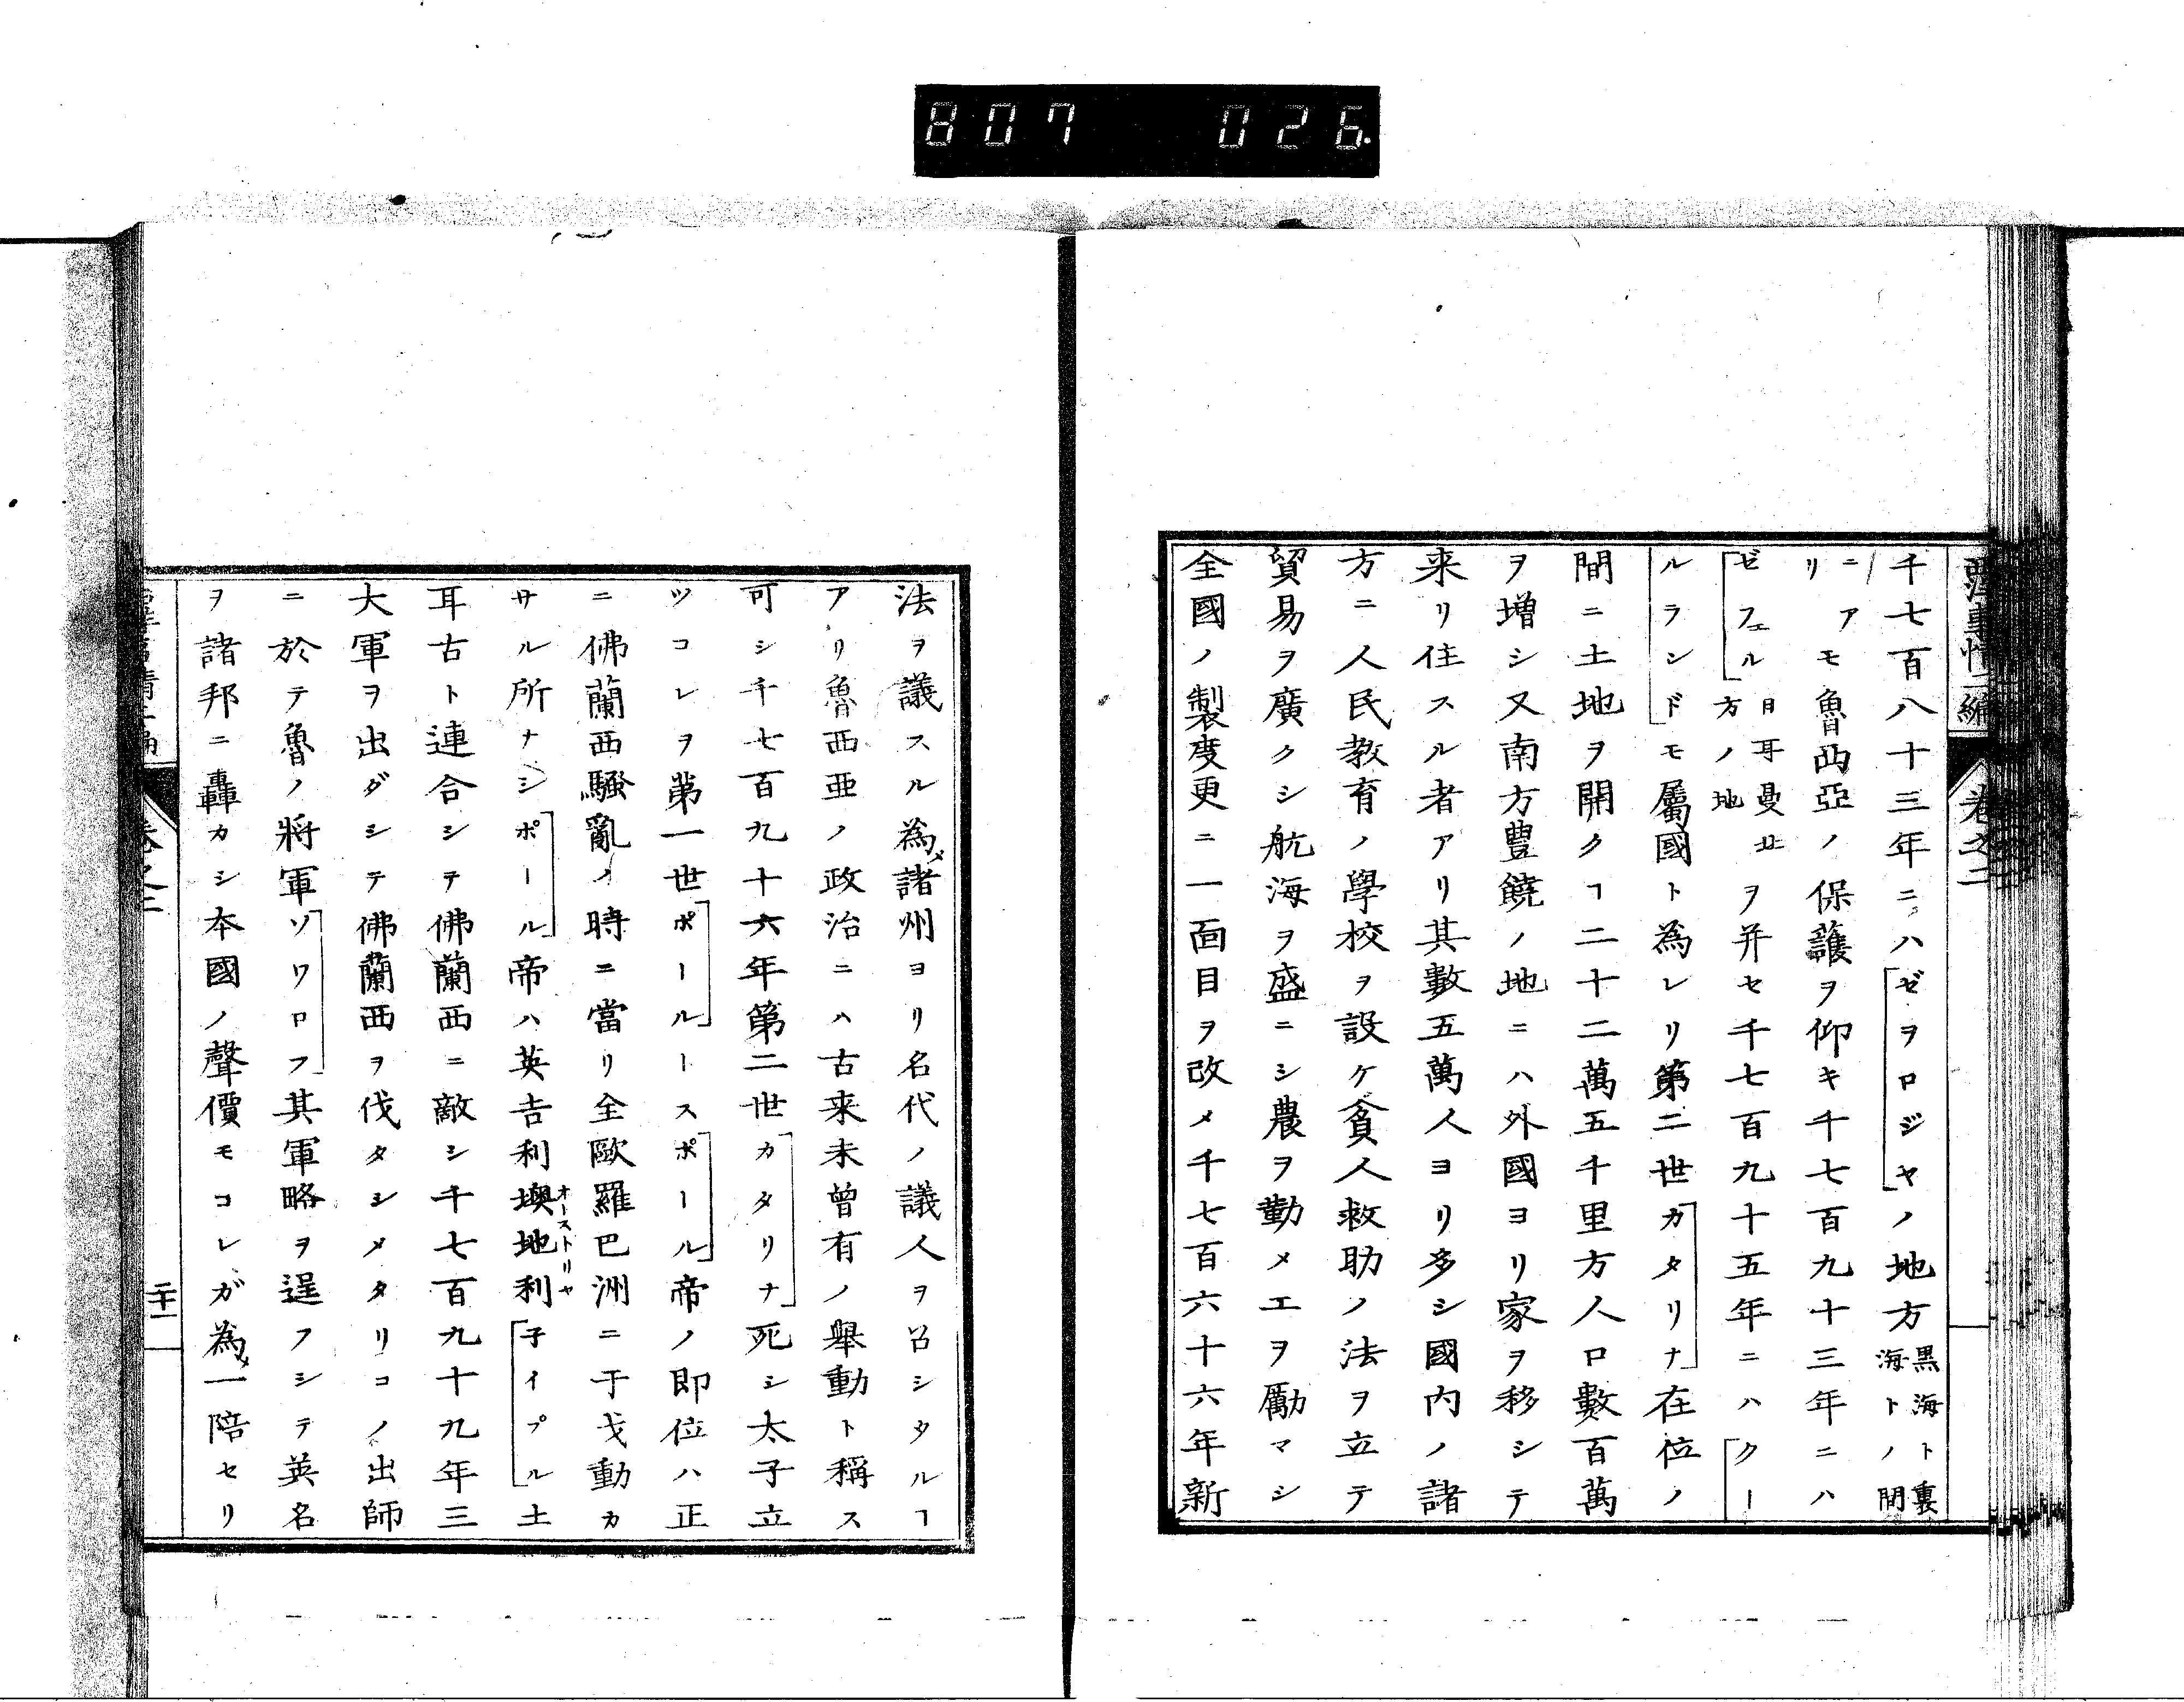 807 026.
西洋事情二編 巻之二
千七百八十三年ニハ「ゼヲロジヤ」ノ地方黒海ト裏海トノ間
ニアリモ魯西亞ノ保護ヲ仰キ千七百九十三年ニハ
「ゼフェル」日耳曼北方ノ地ヲ并セ千七百九十五年ニハ「クー
ルランド」モ屬國ト為レリ第二世「カタリナ」在位ノ
間ニ土地ヲ開クヿ二十二萬五千里方人口數百萬
ヲ増シ又南方豊饒ノ地ニハ外國ヨリ家ヲ移シテ
来リ住スル者アリ其數五萬人ヨリ多シ國内ノ諸
方ニ人民教育ノ學校ヲ設ケ貧人救助ノ法ヲ立テ
貿易ヲ廣クシ航海ヲ盛ニシ農ヲ勤メ工ヲ勵マシ
全國ノ製度更ニ一面目ヲ改メ千七百六十六年新
法ヲ議スル為メ諸州ヨリ名代ノ議人ヲ召シタルヿ
アリ魯西亜ノ政治ニハ古来未曾有ノ舉動ト稱ス
可シ千七百九十六年第二世「カタリナ」死シ太子立
ツコレヲ第一世「ポール」トス「ポール」帝ノ即位ハ正
ニ佛蘭西騷亂ノ時ニ當リ全歐羅巴洲ニ干戈動カ
サル所ナシ「ポール」帝ハ英吉利墺地利オーストリヤ「子イプル」土
耳古ト連合シテ佛蘭西ニ敵シ千七百九十九年三
大軍ヲ出ダシテ佛蘭西ヲ伐タシメタリコノ出師
ニ於テ魯ノ將軍「ソワロフ」其軍略ヲ逞フシテ英名
ヲ諸邦ニ轟カシ本國ノ聲價モコレガ為メ一陪セリ
巻之二
二十一